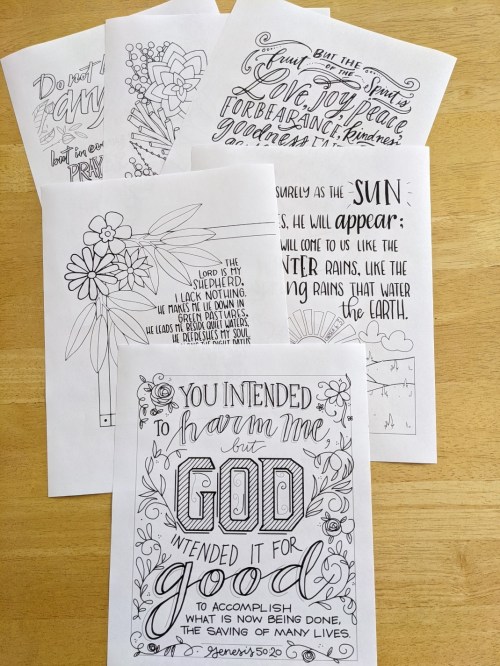 Do not
any
but in eve
PRAY
But the
fruit of the Spirit is
Love, joy, peace,
FORBEARANCE, kindness
goodness
SURELY AS THE SUN
S, HE WILL appear;
WILL COME TO US LIKE THE
NTER RAINS, LIKE THE
ng RAINS THAT WATER
the EARTH.
THE
LORD IS MY
SHEPHERD,
I LACK NOTHING.
HE MAKES ME LIE DOWN IN
GREEN PASTURES,
HE LEADS ME BESIDE QUIET WATERS,
HE REFRESHES MY SOUL.
YOU INTENDED
TO harm me,
but
GOD
INTENDED IT FOR
good
TO ACCOMPLISH
WHAT IS NOW BEING DONE,
THE SAVING OF MANY LIVES.
Genesis 50:20